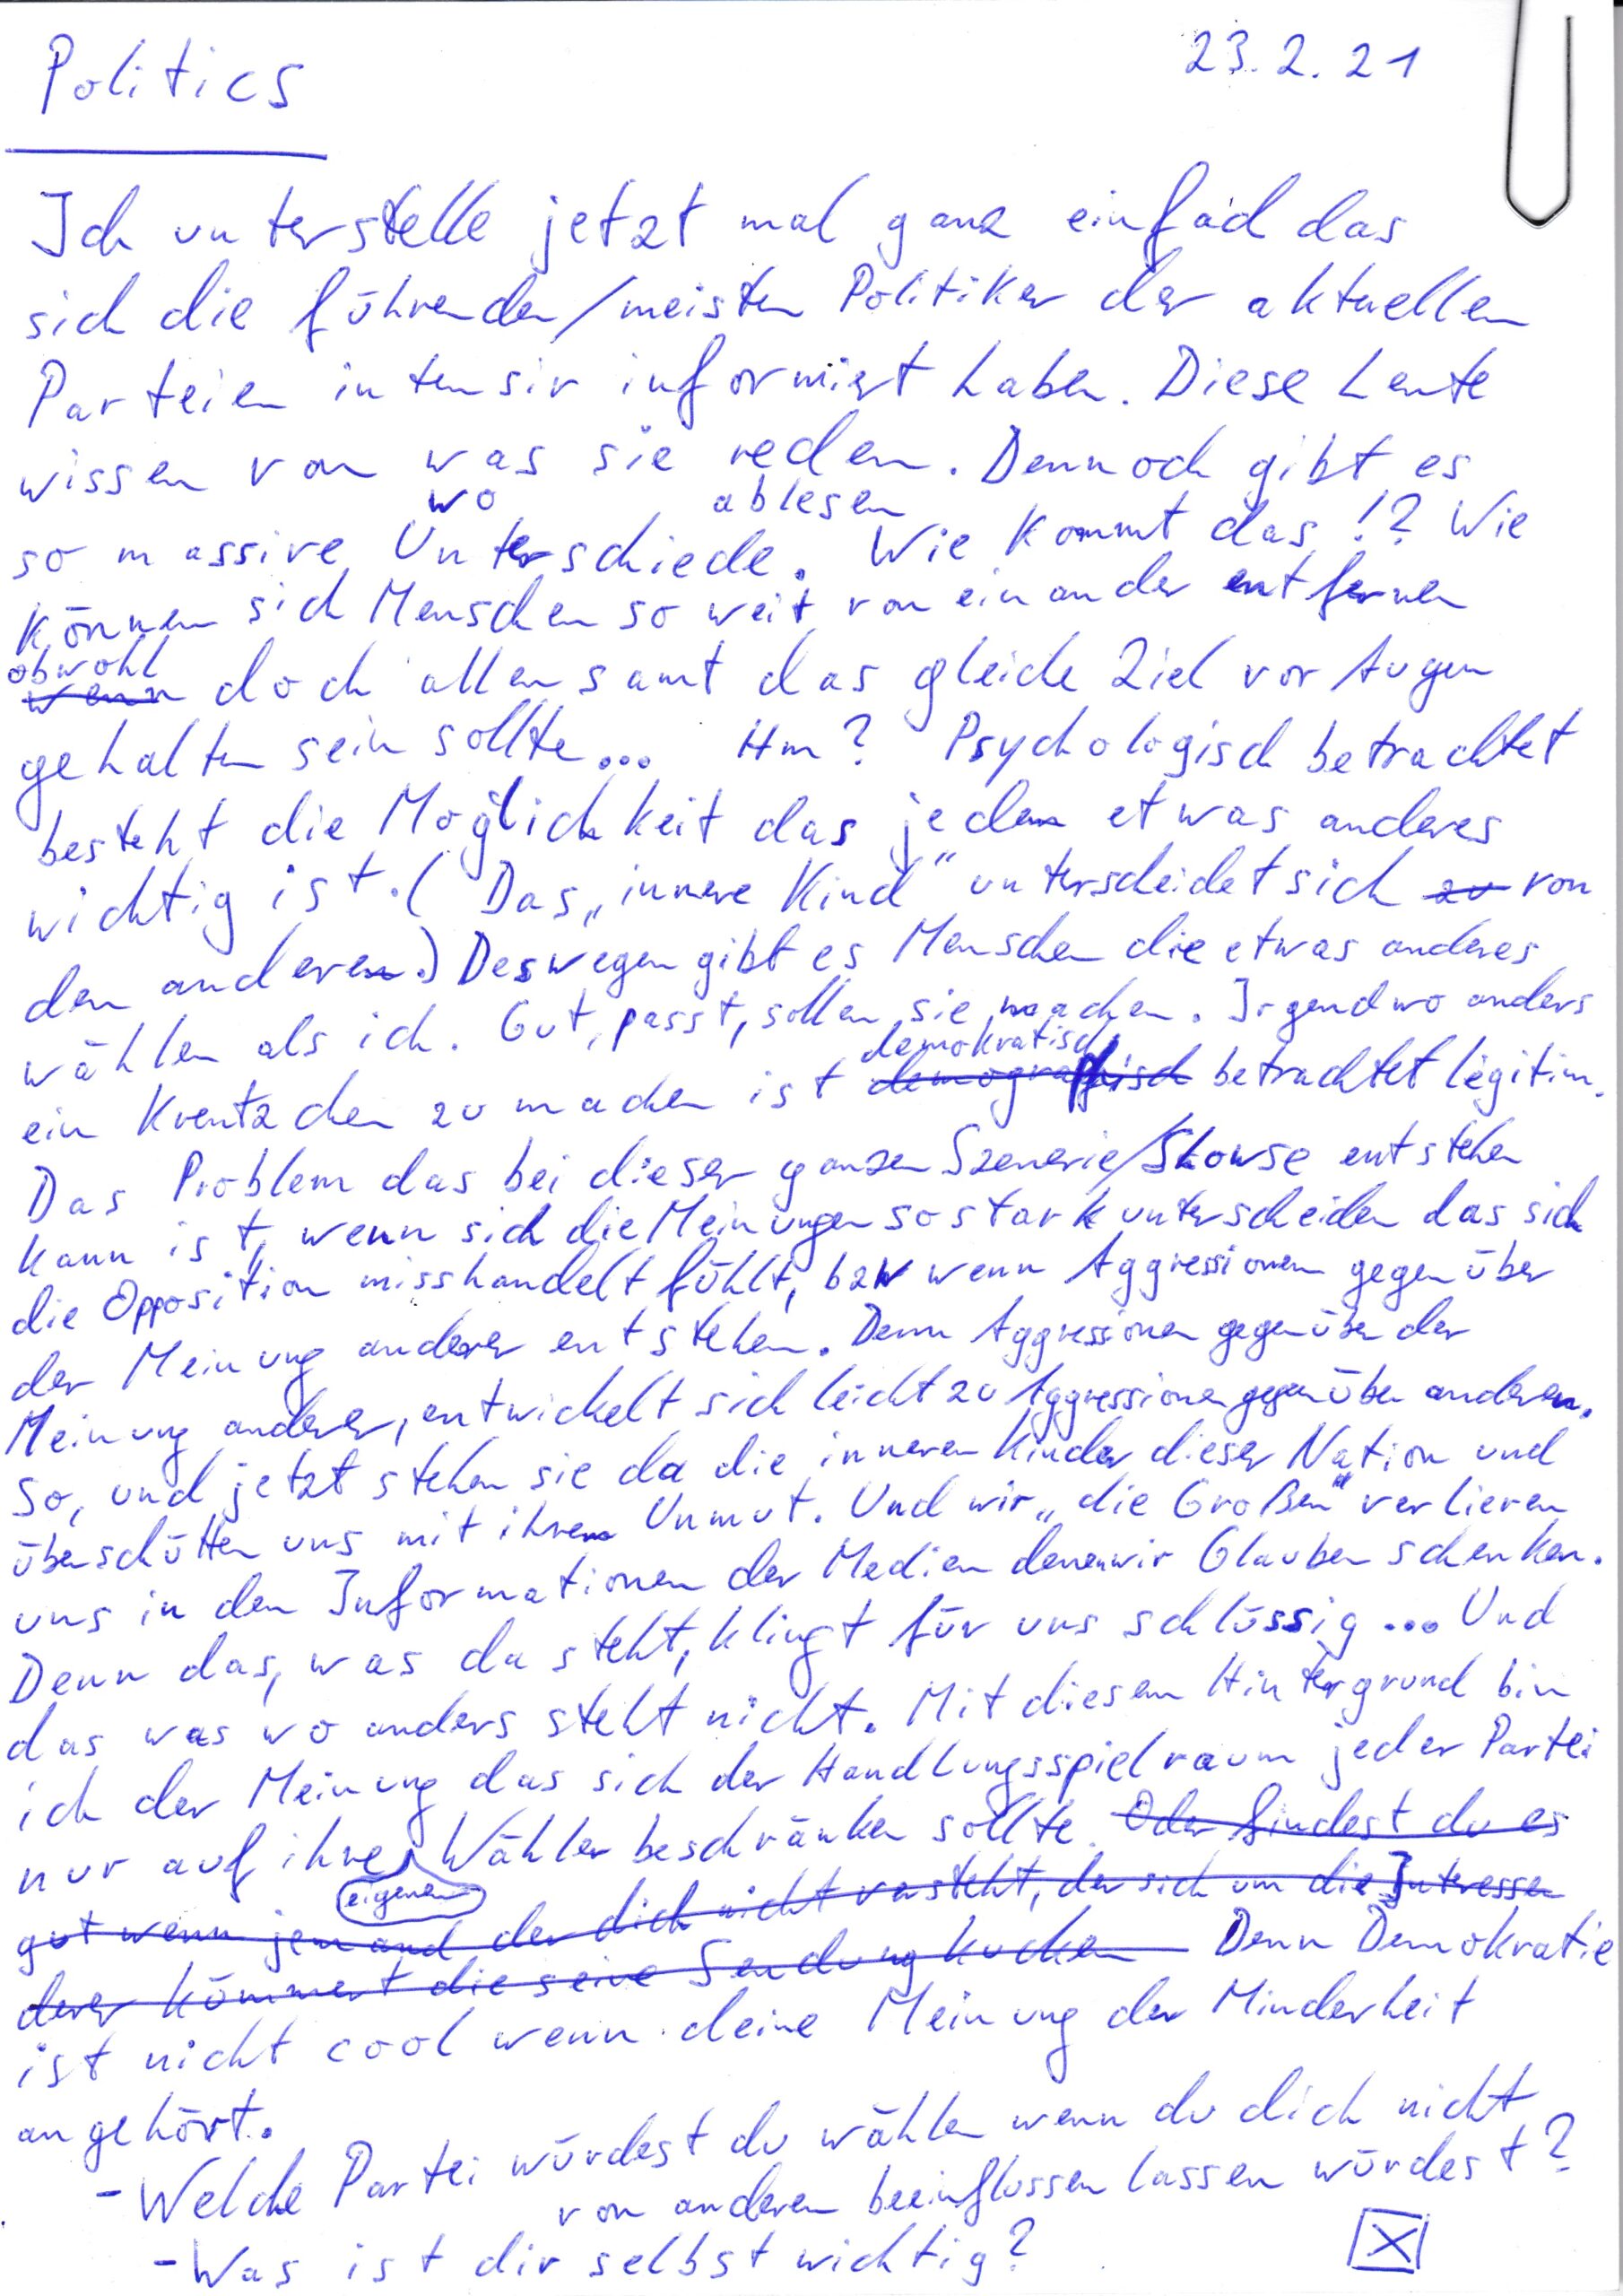 Politics
23.2.21
Ich unterstelle jetzt mal ganz einfach das
sich die führenden/meisten Politiker der aktuellen
Parteien intensiv informiert haben. Diese Leute
wissen von was sie reden. Dennoch gibt es
wo ablesen
so massive Unterschiede. Wie kommt das!? Wie
können sich Menschen so weit voneinander entfernen
obwohl
wenn doch allen samt das gleiche Ziel vor Augen
gehalten sein sollte... Hm? Psychologisch betrachtet
besteht die Möglichkeit das jedem etwas anderes
wichtig ist. (Das „innere Kind" unterscheidet sich zu von
den anderen.) Deswegen gibt es Menschen die etwas anderes
wählen als ich. Gut, passt, sollen sie machen. Irgendwo anders
demokratisch
ein Kreutzchen zu machen ist demographisch betrachtet legitim.
Das Problem das bei dieser ganzen Szenerie/Showse entstehen
kann ist, wenn sich die Meinungen so stark unterscheiden das sich
die Opposition misshandelt fühlt, bzw wenn Aggressionen gegenüber
der Meinung anderer entstehen. Denn Aggressionen gegenüber der
Meinung anderer, entwickelt sich leicht zu Aggressionen gegenüber anderen.
So, und jetzt stehen sie da die inneren Kinder dieser Nation und
überschütten uns mit ihrem Unmut. Und wir „die Großen" verlieren
uns in den Informationen der Medien denen wir Glauben schenken.
Denn das, was da steht, klingt für uns schlüssig... Und
das was wo anders steht nicht. Mit diesem Hintergrund bin
ich der Meinung das sich der Handlungsspielraum jeder Partei
nur auf ihre Wähler beschränken sollte. Oder findest du es
eigenen
gut wenn jemand der dich nicht versteht, der sich um die Interessen
derer kümmert die seine Sendung kucken Denn Demokratie
ist nicht cool wenn deine Meinung der Minderheit
angehört.
- Welche Partei würdest du wählen wenn du dich nicht
von anderen beeinflussen lassen würdest?
- Was ist dir selbst wichtig?